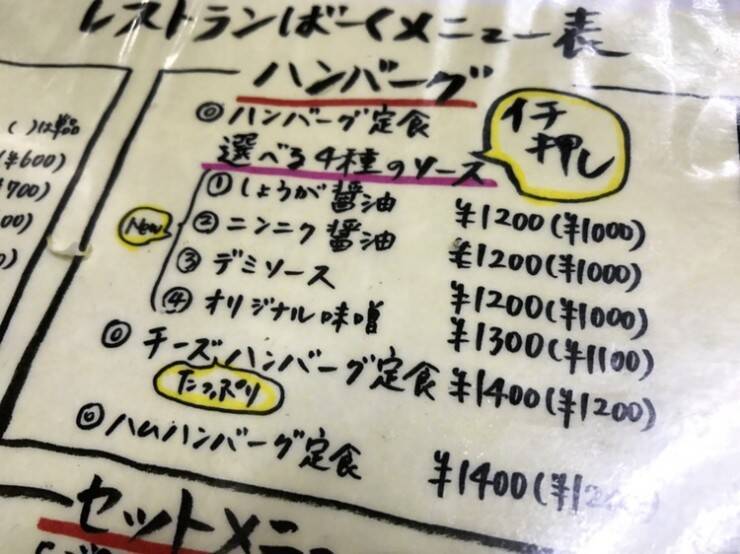 レストランばーくメニュー表
ハンバーグ
イチ
押し
◎ハンバーグ定食
選べる4種のソース
New
①しょうが醤油 ¥1200(¥1000)
②ニンニク醤油 ¥1200(¥1000)
③デミソース ¥1200(¥1000)
④オリジナル味噌 ¥1300(¥1100)
◎チーズハンバーグ定食 ¥1400(¥1200)
たっぷり
◎ハムハンバーグ定食 ¥1400(¥12
セットメニ
( )は単品
(¥600)
700)
00)